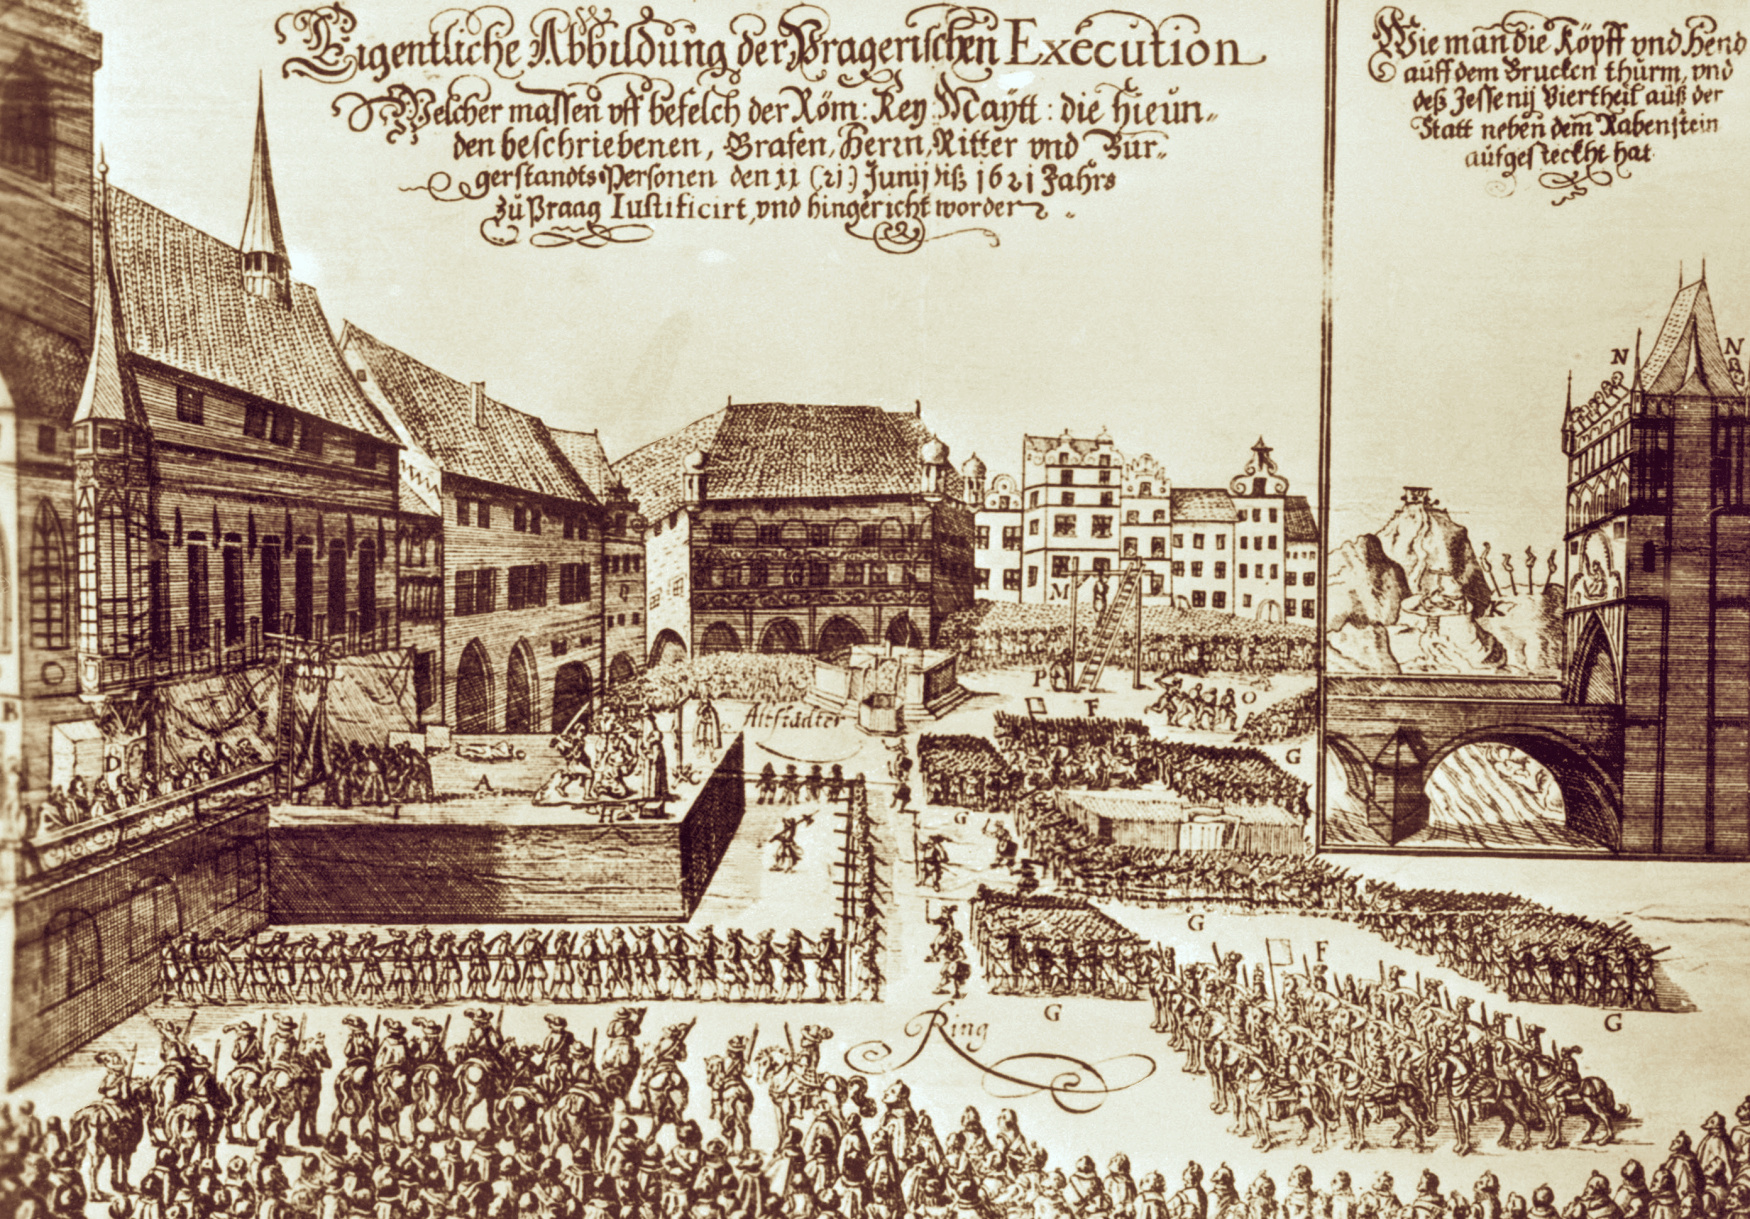 Eigentliche Abbildung der Pragerischen Execution
Welcher massen vff befelch der Röm: Key: Maÿtt: die hieun-
den beschriebenen, Grafen, Herrn, Ritter vnd Bur-
gerstandts Personen den 11 (21) Junij diß 1621 Jahrs
zu Praag Iustificirt, vnd hingericht worden.
Wie man die Köpff vnd Hend
auff dem Brucken thurm, vnd
deß Jessenij Viertheil auß der
Statt neben dem Rabenstein
aufgesteckht hat.
N
N
M
K
P
O
F
Altstädter
G
D
A
G
G
F
Ring
G
G